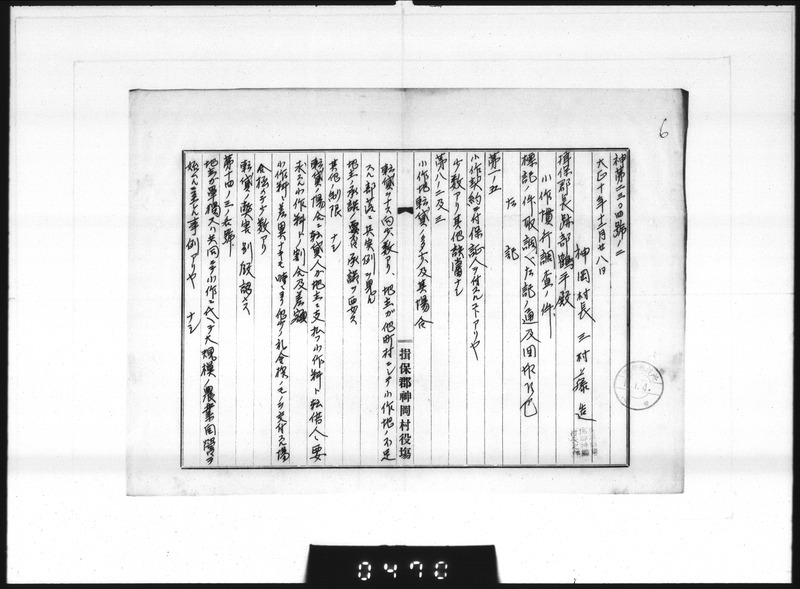 神第二三〇四號ノ二
大正十年十二月廿八日
神岡村長 三村藤造
揖保郡長 跡部鶴平殿
小作慣行調査ノ件
標記ノ件取調ベ左記ノ通及回報候也
左記
第一ノ五
小作契約ニ付保証人ヲ付スルコトアリヤ
少数アリ其他該當ナシ
第八ノ二及三
小作地転貸ノ多少及其場合
転貸ヲナスモノ少数アリ、地主ガ他町村ニシテ小作地ノ不足
スル部落ニ其実例ヲ見ル
地主ノ承諾ノ要否 承諾ヲ要ス
其他ノ制限 ナシ
転貸ノ場合ニ転貸人ガ地主ニ支払フ小作料ト転借人ニ要
求スル小作料トノ割合及差額
小作料ニ差異ナキモ時ニヨリ多少ノ礼金様ノモノヲ交付スル場
合極メテ少数アリ
転貸ノ弊害 別段認メズ
第十四ノ三ノ七號
地主ガ單獨又ハ共同シテ小作ニ代ヘテ大規模ノ農業自營ヲ
始メントスル事例アリヤ ナシ
揖保郡神岡村役場
6
0470